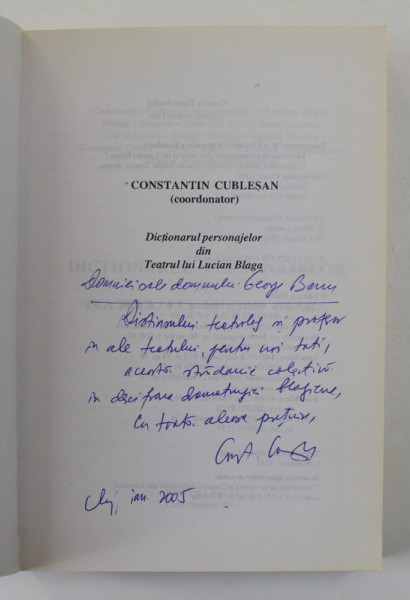 CONSTANTIN CUBLEȘAN
(coordonator)
Dicționarul personajelor
din
Teatrul lui Lucian Blaga
Domniei sale domnului George Banu
Distinsului teatrolog și profesor
în ale teatrului, pentru noi toți,
această strădanie colectivă
în descifrarea dramaturgiei blagiene,
Cu toată aleasa prețuire,
Cluj, ian. 2005